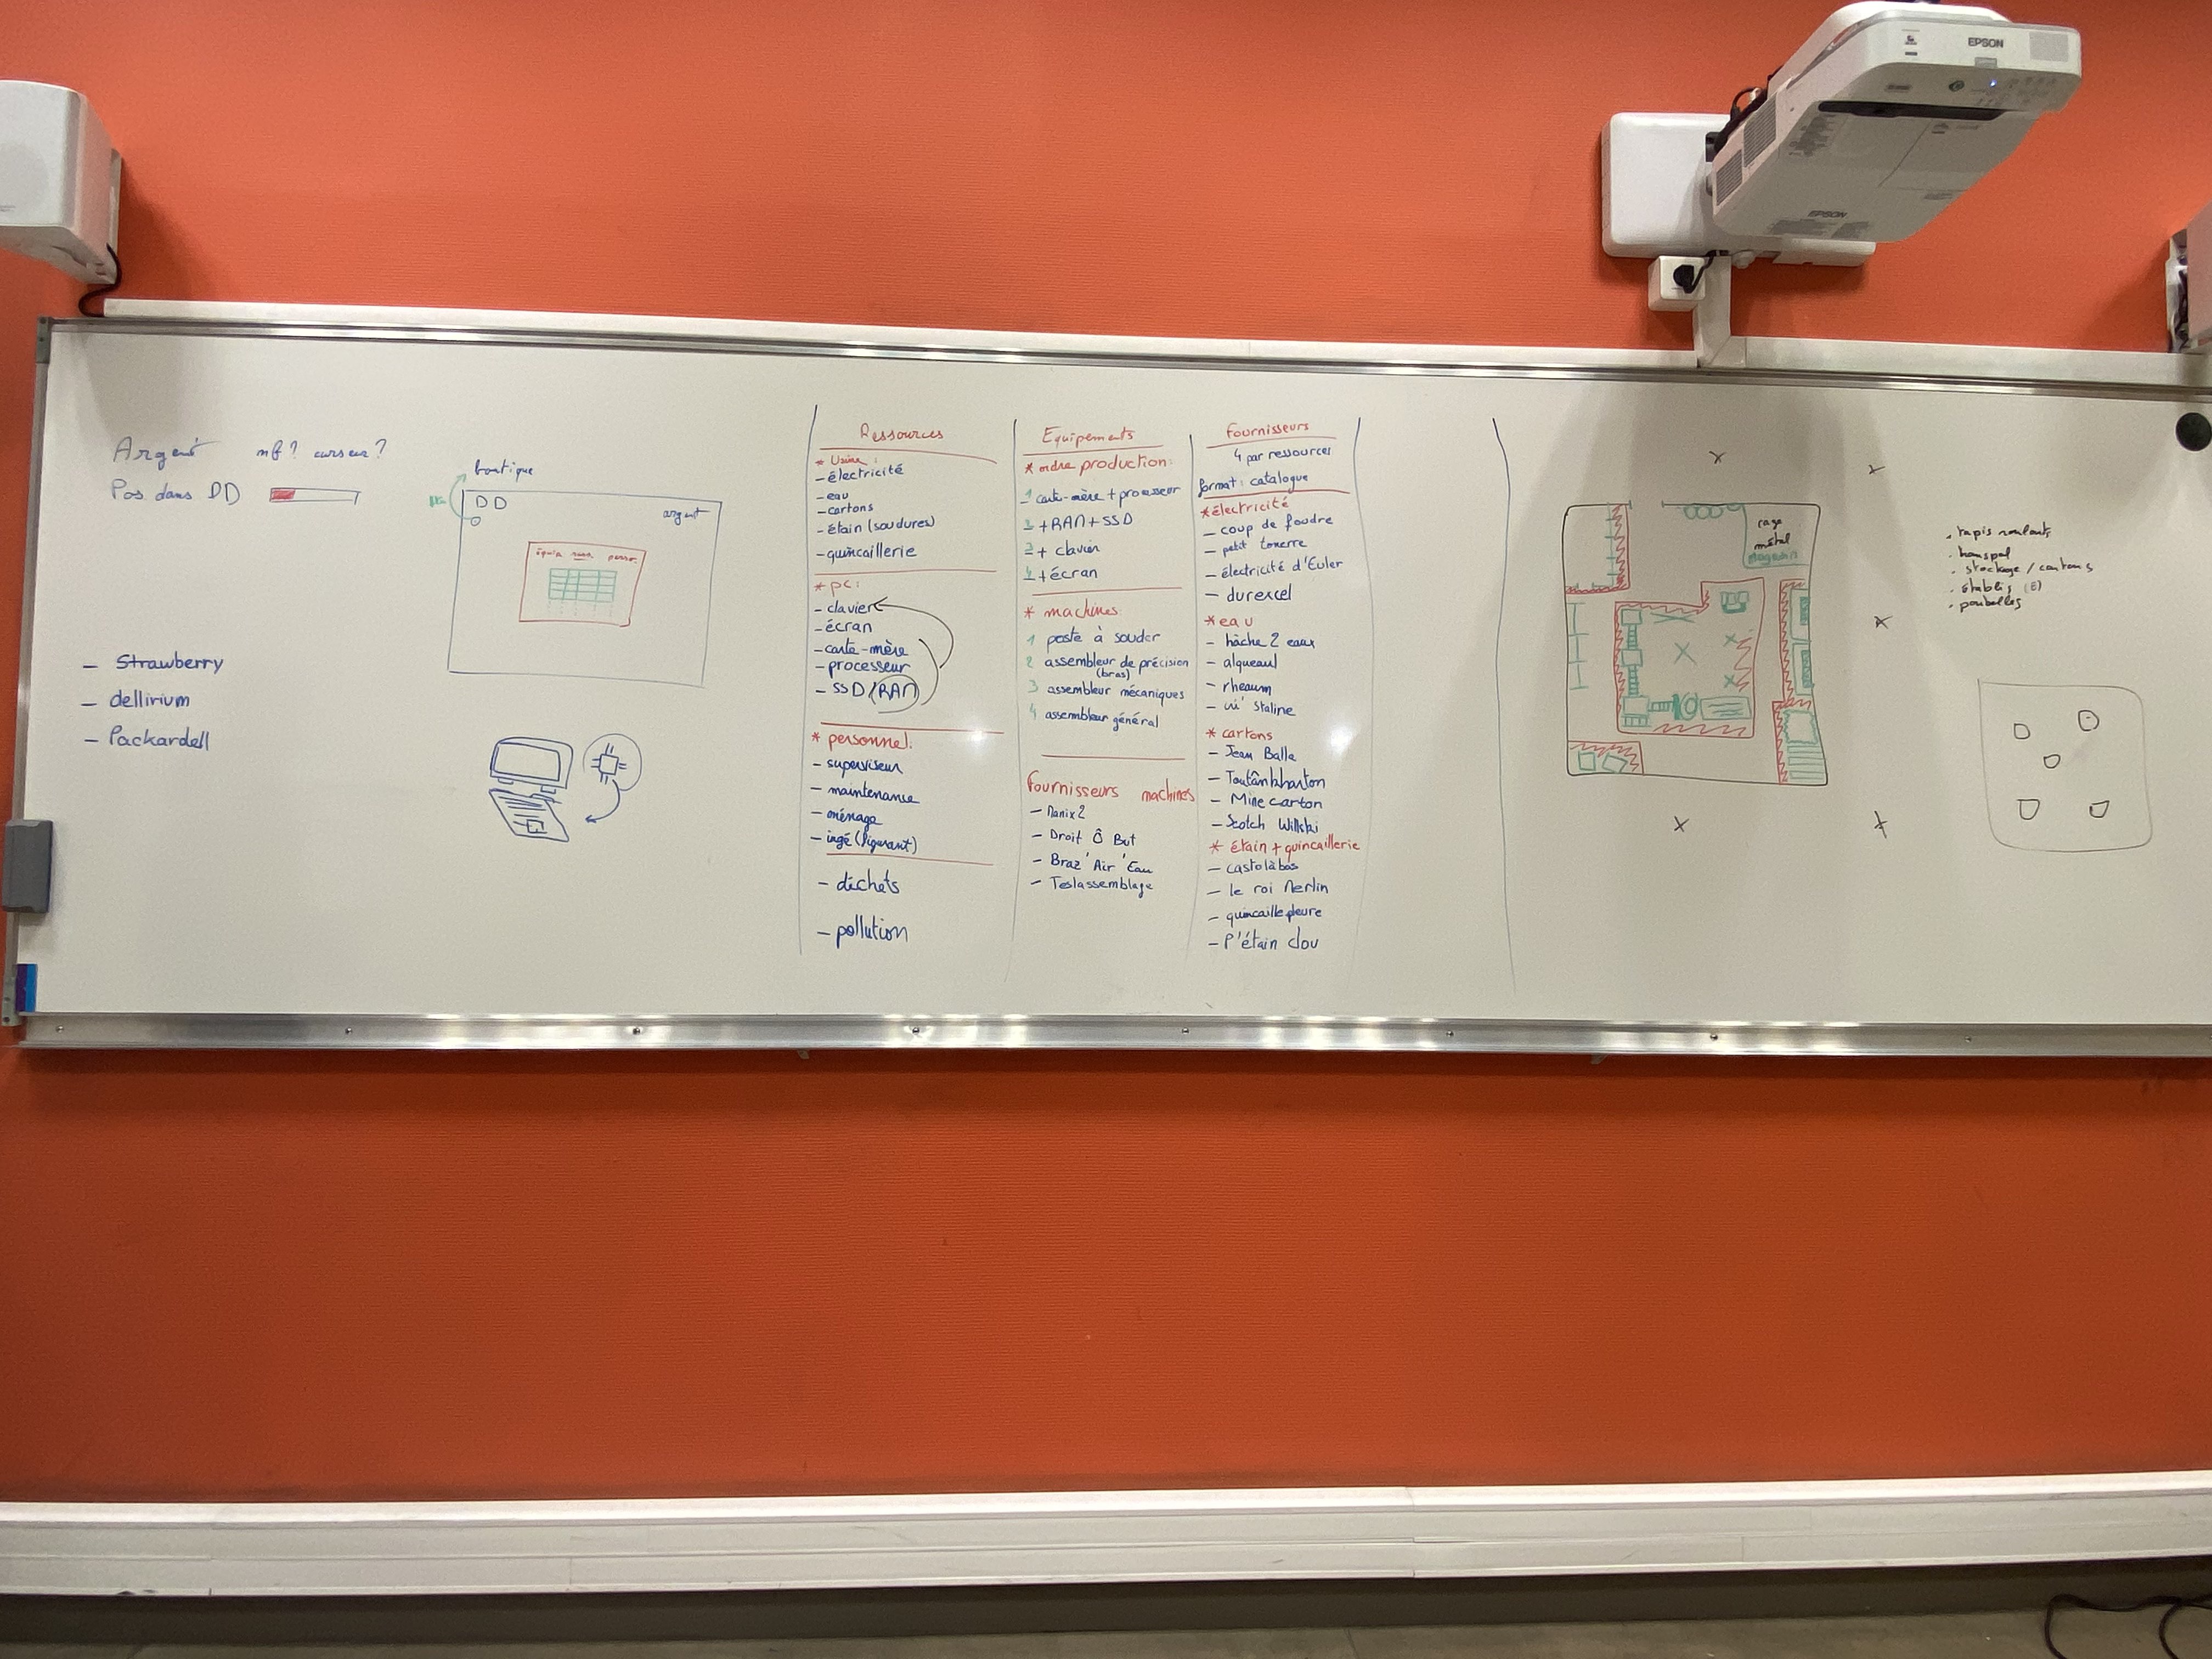 EPSON
EPSON
Argent nb? curseur?
Pos. dans DD
boutique
DD
argent
équip ress. perso.
- Strawberry
- dellirium
- Packardell
Ressources
* Usine:
- électricité
- eau
- cartons
- étain (soudures)
- quincaillerie
* pc:
- clavier
- écran
- carte-mère
- processeur
- SSD (RAM)
* personnel:
- superviseur
- maintenance
- ménage
- ingé (figurant)
- déchets
- pollution
Equipements
* ordre production:
1 carte-mère + processeur
2 + RAM + SSD
3 + clavier
4 + écran
* machines:
1 poste à souder
2 assembleur de précision
(bras)
3 assembleur mécaniques
4 assembleur général
Fournisseurs machines
- Manix2
- Droit Ô But
- Braz'Air'Eau
- Teslassemblage
Fournisseurs
4 par ressources
format: catalogue
* électricité
- coup de foudre
- petit tonerre
- électricité d'Euler
- durexcel
* eau
- hâche 2 eaux
- alqueaul
- rheaum
- cri'staline
* cartons
- Jean Balle
- Toutânkharton
- Mine carton
- Scotch Willski
* étain + quincaillerie
- castolàbas
- le roi Merlin
- quincaille pleure
- P'étain clou
rage
métal
magasin
. tapis roulants
. transpal
. stockage / cartons
. établis (E)
. poubelles